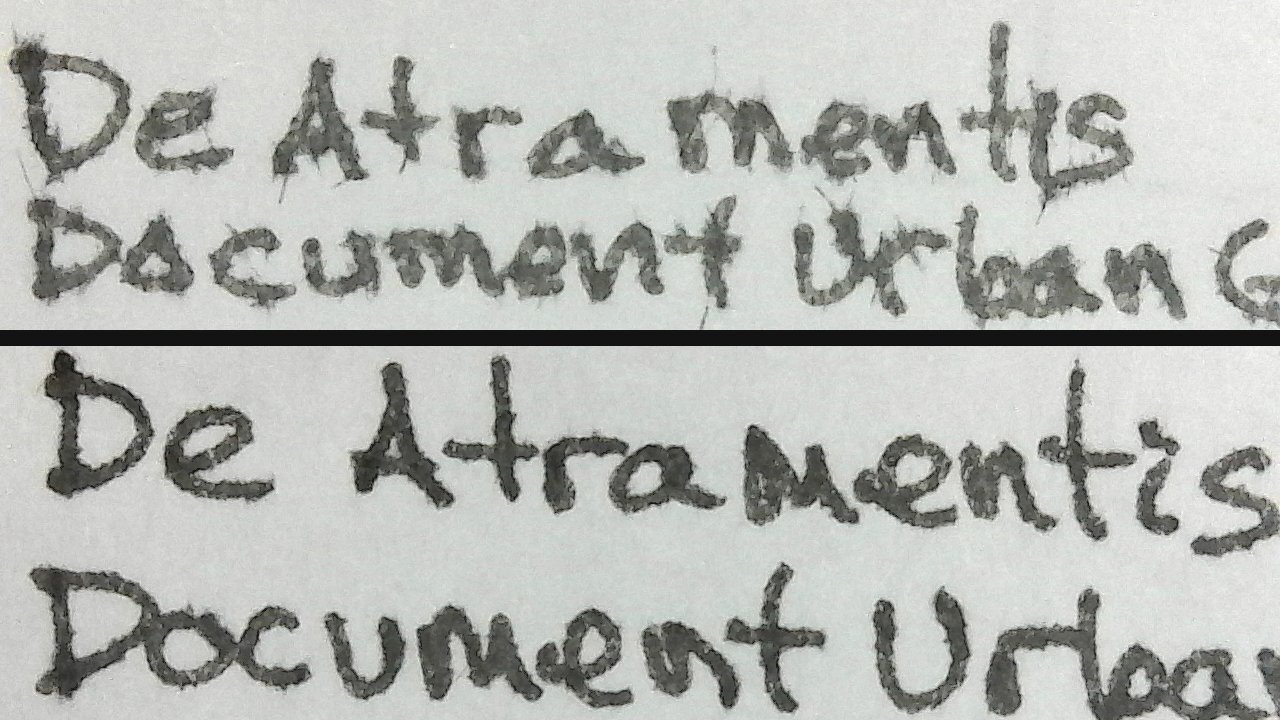 De Atramentis
Document Urban G
De Atramentis
Document Urban